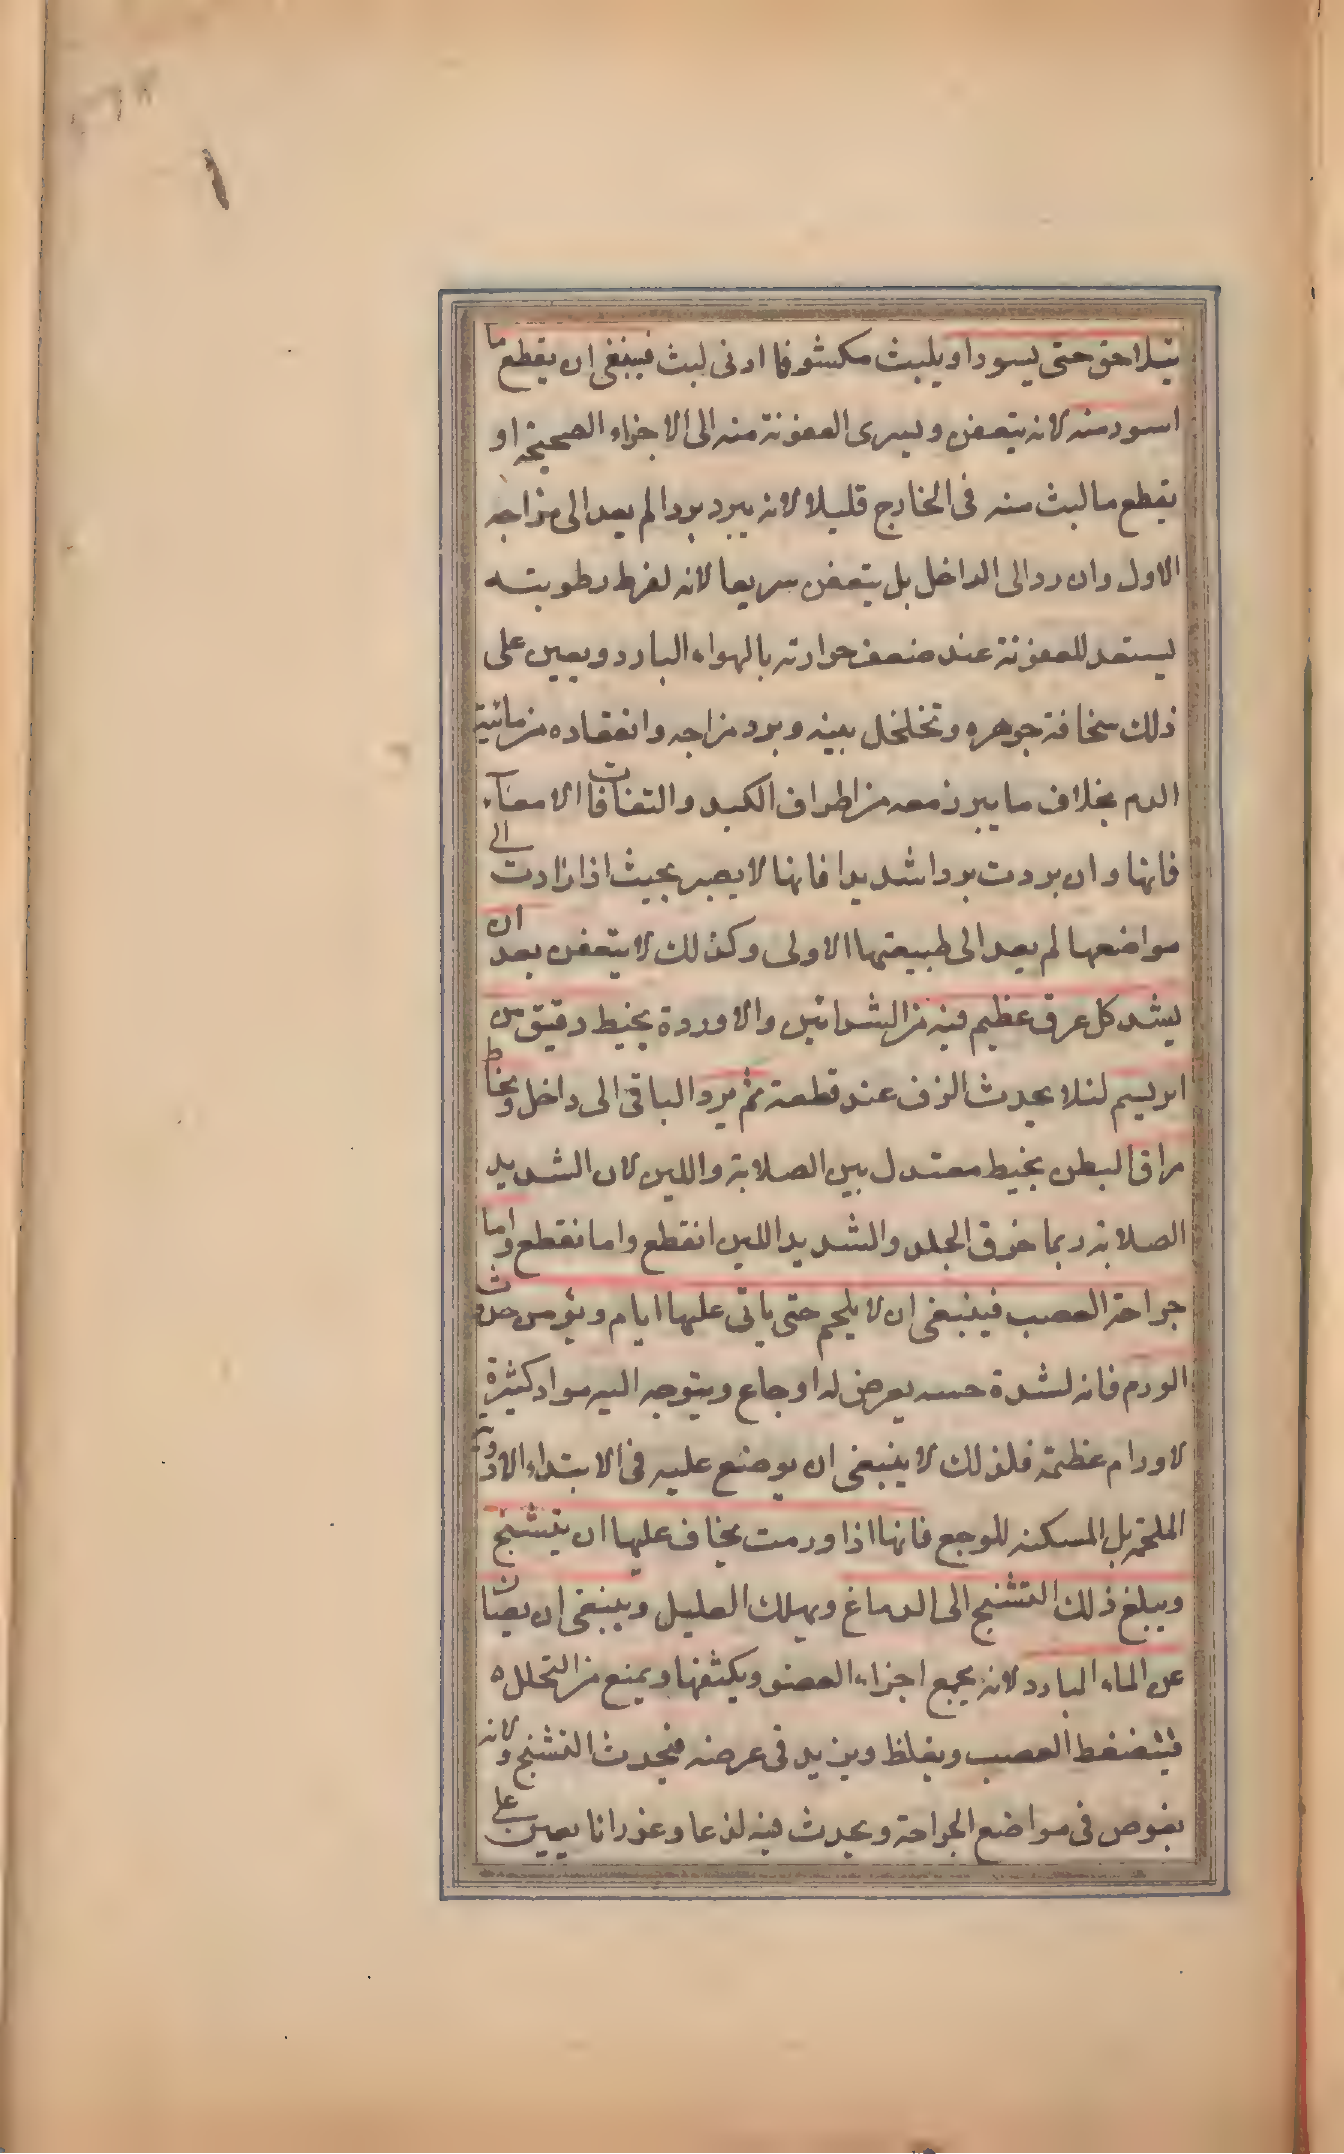 يتلاحق حتى يسود او يلبث مكشوفا ادنى لبث فينبغى ان يقطع ما
اسود منه لانه يتعفن ويسرى العفونة منه الى الاجزاء الصحيحة او
يقطع ما لبث منه فى الخارج قليلا لانه يبرد بردا لم يعد الى مزاجه
الاول وان رد الى الداخل بل يتعفن سريعا لانه لفرط رطوبته
يستعد للعفونة عند ضعف حرارته بالهواء البارد ويعين على
ذلك سخافة جوهره وتخلخل بينه وبرد مزاجه وانعقاده من مائية
الدم بخلاف ما يبرز معه من اطراف الكبد والتفافات الامعاء
فانها وان بردت بردا شديدا فانها لا يصير بحيث اذا زادت الى
مواضعها لم يعد الى طبيعتها الاولى وكذلك لا يتعفن بعد ان
يشد كل عرق عظيم فيه من الشرائين والاوردة بخيط دقيق من
ابريسم لئلا يحدث النزف عند قطعه ثم يرد الباقى الى داخل ويخاط
مراق البطن بخيط معتدل بين الصلابة واللين لان الشديد
الصلابة ربما خرق الجلد والشديد اللين انقطع واما نقطع واما
جراحة العصب فينبغى ان لا يلحم حتى ياتى عليها ايام ويؤمن حدوث
الورم فانه لشدة حسه يعرض له اوجاع ويتوجه اليه مواد كثيرة
لاورام عظيمة فلذلك لا ينبغى ان يوضع عليه فى الابتداء الادوية
الملحمة بل المسكنه للوجع فانها اذا ورمت يخاف عليها ان يتشنج
ويبلغ ذلك التشنج الى الدماغ ويهلك العليل وينبغى ان يصان
عن الماء البارد لانه يجمع اجزاء العضو ويكثفها ويمنع من التحلل
فينضغط العصب ويغلظ ويزيد فى عرضه فيحدث التشنج ولانه
يغوص فى مواضع الجراحة ويحدث فيه لذعا وغورانا يعين على